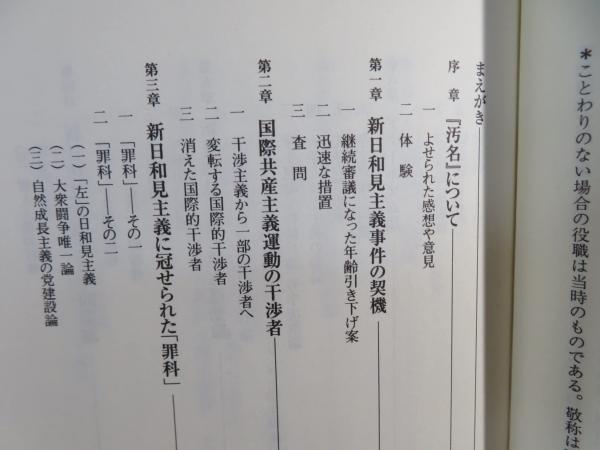 ＊ことわりのない場合の役職は当時のものである。敬称は
まえがき
序章 『汚名』について
一 よせられた感想や意見
二 体験
第一章 新日和見主義事件の契機
一 継続審議になった年齢引き下げ案
二 迅速な措置
三 査問
第二章 国際共産主義運動の干渉者
一 干渉主義から一部の干渉者へ
二 変転する国際的干渉者
三 消えた国際的干渉者
第三章 新日和見主義に冠せられた「罪科」
一 「罪科」――その一
二 「罪科」――その二
（一）「左」の日和見主義
（二）大衆闘争唯一論
（三）自然成長主義の党建設論